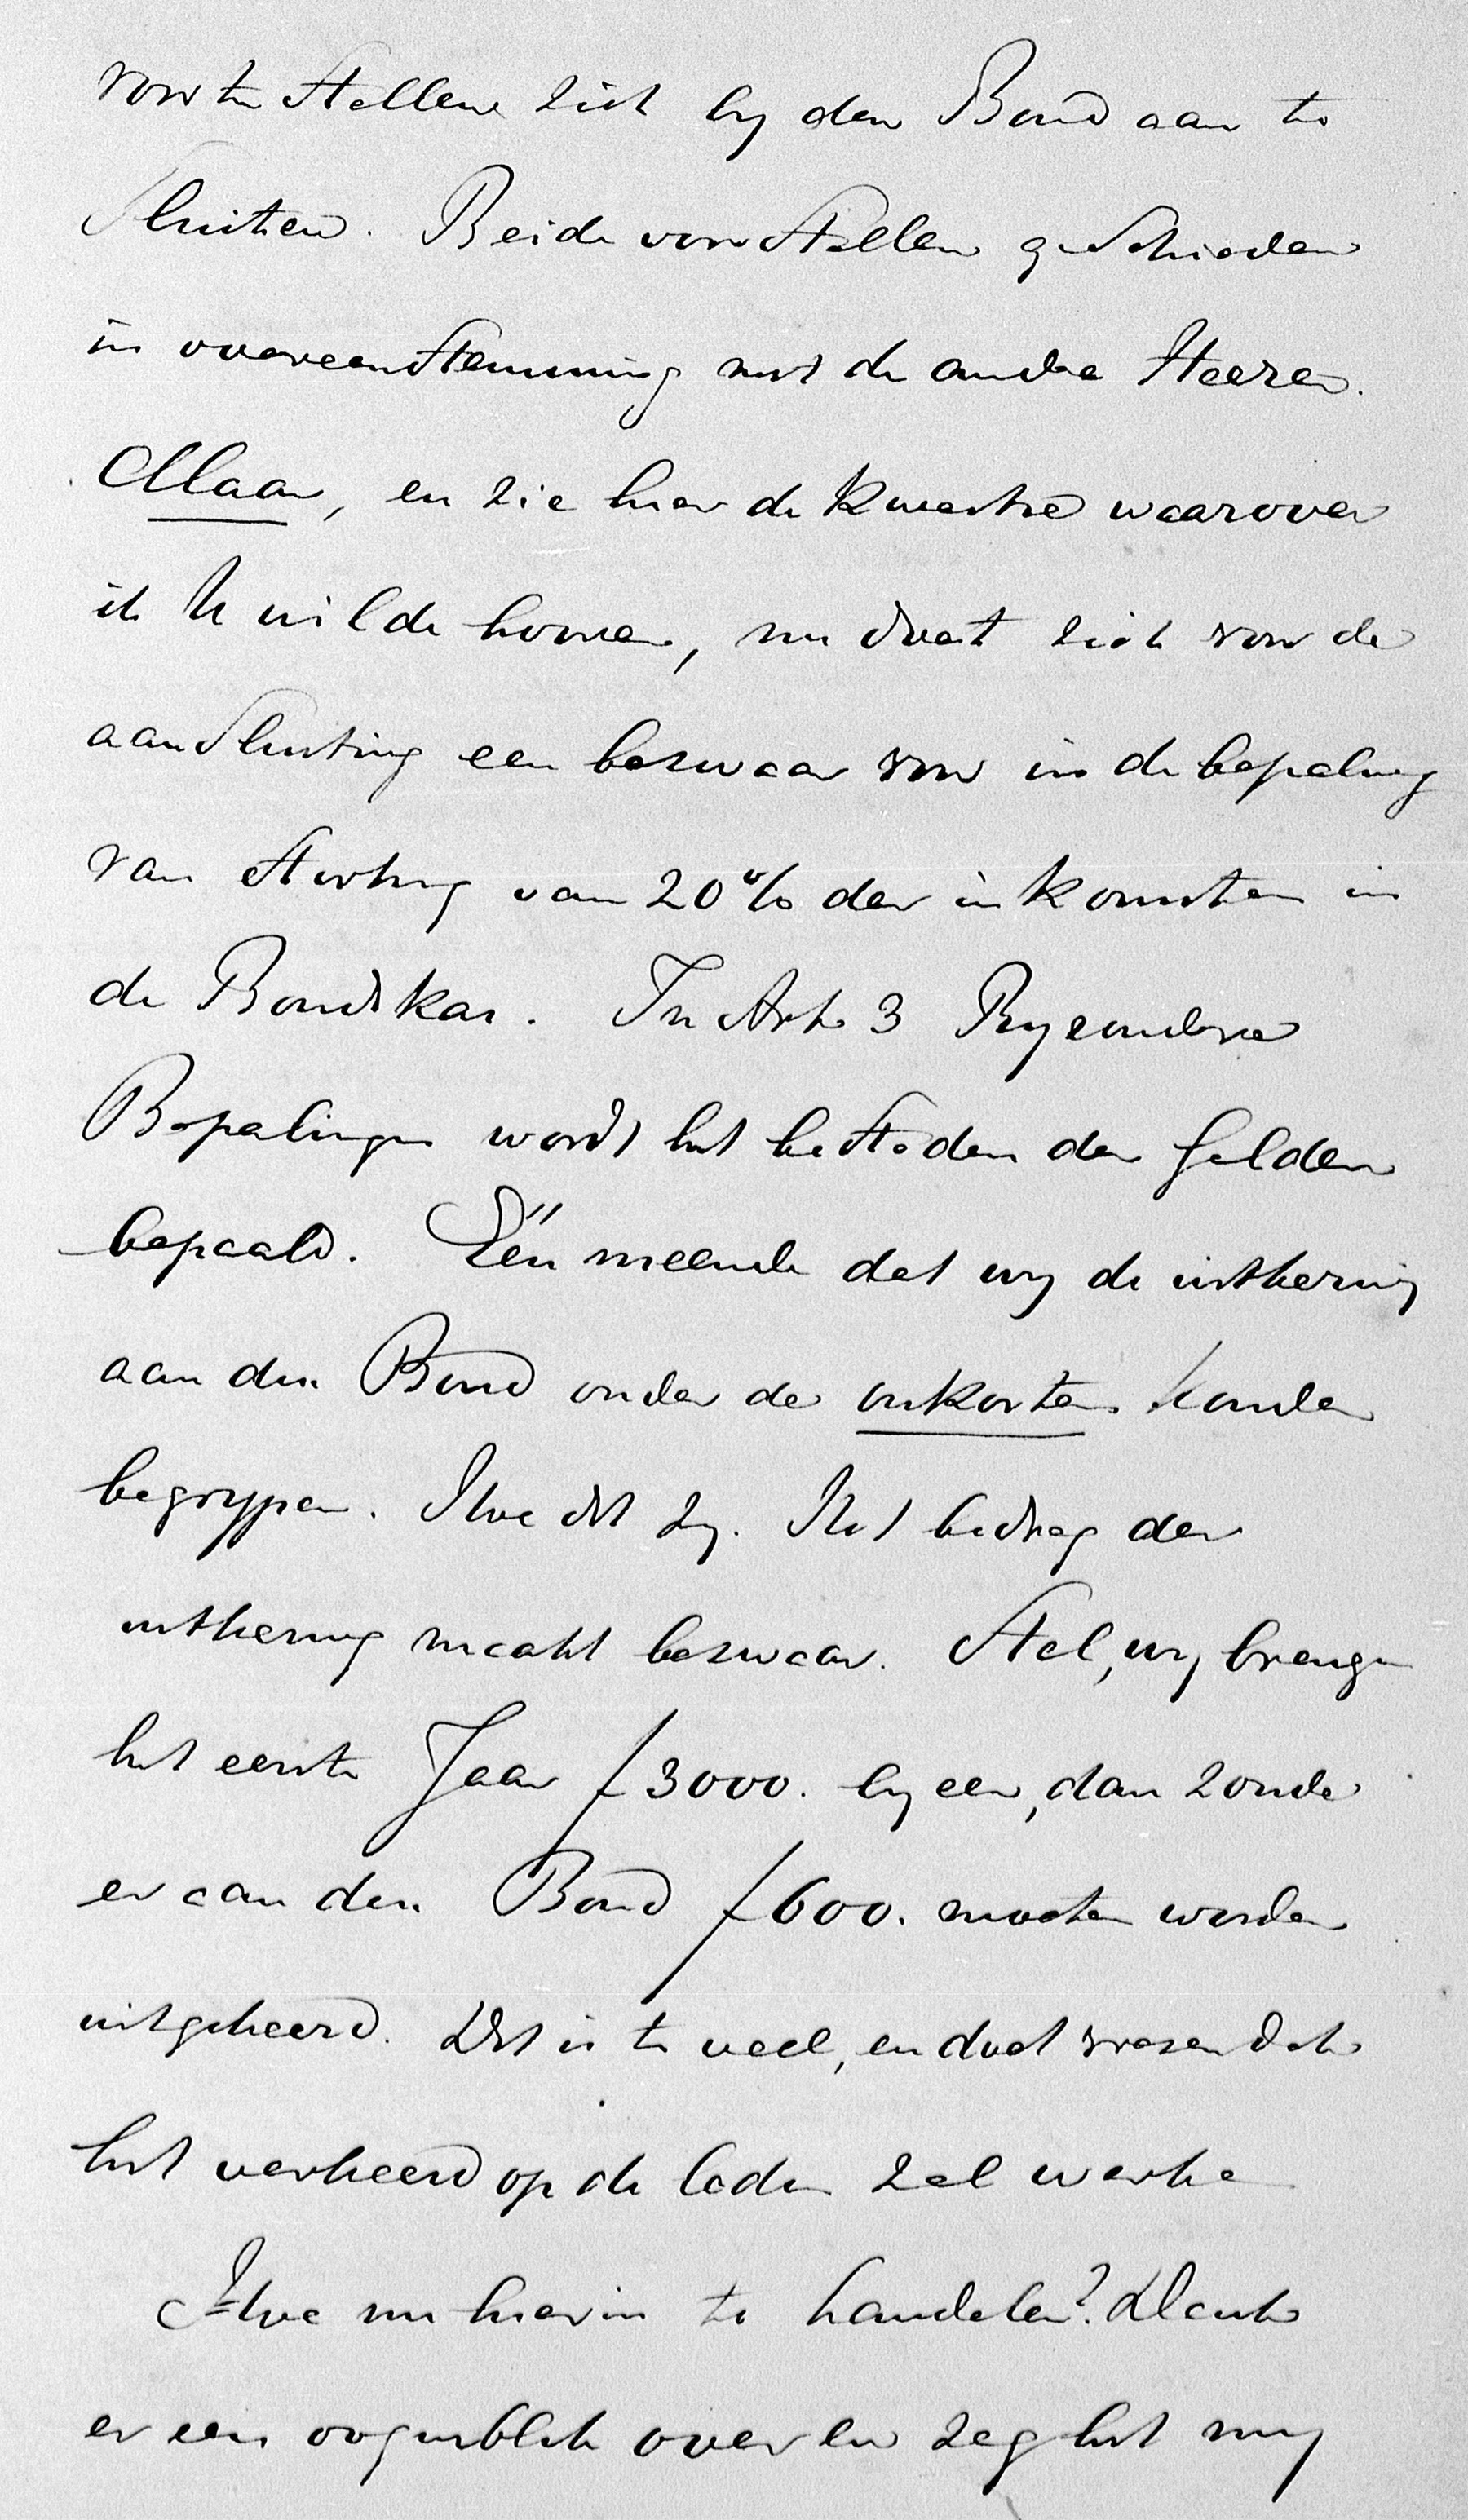 voor te stellen zich by den Bond aan te
sluiten. Beide voorstellen geschieden
in overeenstemming met de andre Heeren.
Maar, en zie hier de kwestie waarover
ik U wilde hooren, nu doet zich voor de
aansluiting een bezwaar voor in de bepaling
van storting van 20% der inkomsten in
de Bondskas. In Art. 3 Byzondere
Bepalingen wordt het besteden der gelden
bepaald. Eén meende dat wy de uitkeering
aan den Bond onder de onkosten konden
begrypen. Hoe dit zy. Het bedrag der
uitkeering maakt bezwaar. Stel, wy brengen
het eerste Jaar f 3000. byeen, dan zoude
er aan den Bond f 600. moeten worden
uitgekeerd. Dit is te veel, en doet vreezen dat
het verkeerd op de leden zal werken
Hoe nu hierin te handelen? Denk
er een oogenblik over en zeg het my